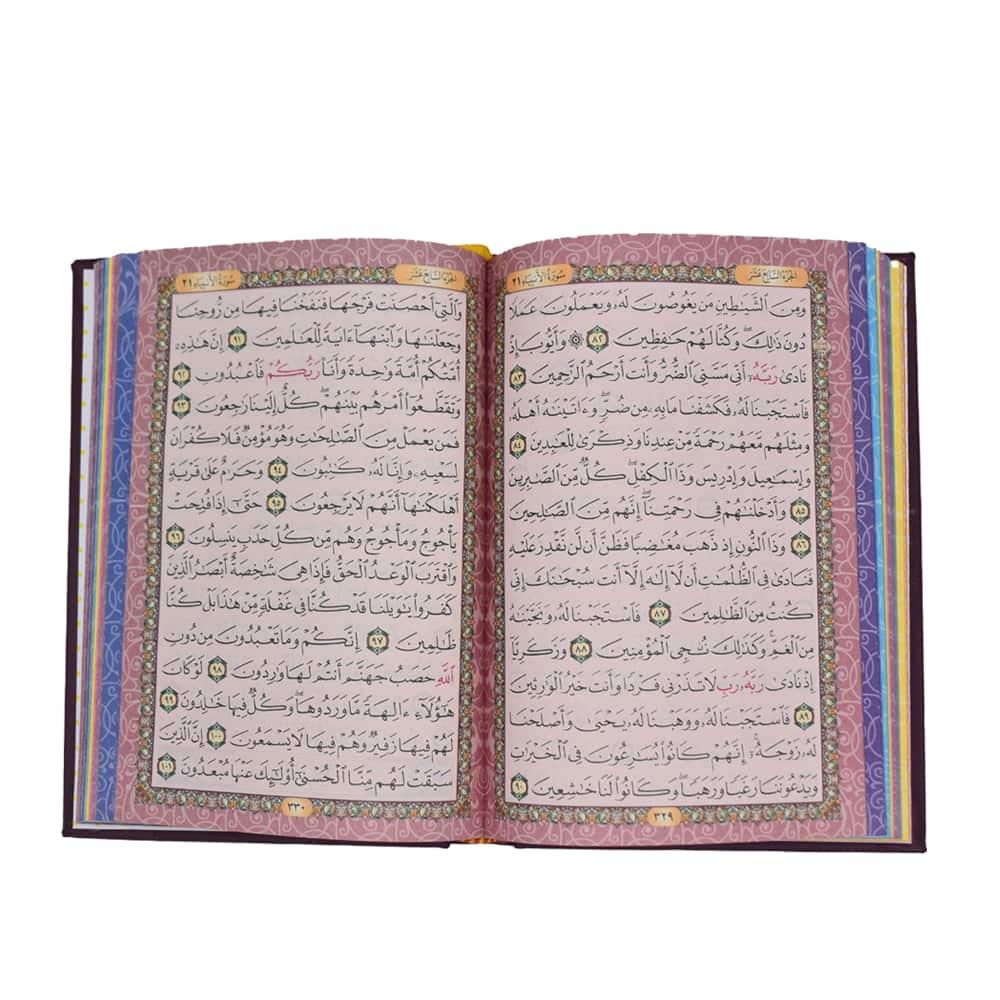 الجزء السابع عشر
سورة الأنبياء ٢١
وَمِنَ ٱلشَّيَٰطِينِ مَن يَغُوصُونَ لَهُۥ وَيَعْمَلُونَ عَمَلًا
دُونَ ذَٰلِكَ ۖ وَكُنَّا لَهُمْ حَٰفِظِينَ ٨٢ ۞ وَأَيُّوبَ إِذْ
نَادَىٰ رَبَّهُۥٓ أَنِّى مَسَّنِىَ ٱلضُّرُّ وَأَنتَ أَرْحَمُ ٱلرَّٰحِمِينَ ٨٣
فَٱسْتَجَبْنَا لَهُۥ فَكَشَفْنَا مَا بِهِۦ مِن ضُرٍّ ۖ وَءَاتَيْنَٰهُ أَهْلَهُۥ
وَمِثْلَهُم مَّعَهُمْ رَحْمَةً مِّنْ عِندِنَا وَذِكْرَىٰ لِلْعَٰبِدِينَ ٨٤
وَإِسْمَٰعِيلَ وَإِدْرِيسَ وَذَا ٱلْكِفْلِ ۖ كُلٌّ مِّنَ ٱلصَّٰبِرِينَ
٨٥ وَأَدْخَلْنَٰهُمْ فِى رَحْمَتِنَآ ۖ إِنَّهُم مِّنَ ٱلصَّٰلِحِينَ
٨٦ وَذَا ٱلنُّونِ إِذ ذَّهَبَ مُغَٰضِبًا فَظَنَّ أَن لَّن نَّقْدِرَ عَلَيْهِ
فَنَادَىٰ فِى ٱلظُّلُمَٰتِ أَن لَّآ إِلَٰهَ إِلَّآ أَنتَ سُبْحَٰنَكَ إِنِّى
كُنتُ مِنَ ٱلظَّٰلِمِينَ ٨٧ فَٱسْتَجَبْنَا لَهُۥ وَنَجَّيْنَٰهُ
مِنَ ٱلْغَمِّ ۚ وَكَذَٰلِكَ نُۨجِى ٱلْمُؤْمِنِينَ ٨٨ وَزَكَرِيَّآ
إِذْ نَادَىٰ رَبَّهُۥ رَبِّ لَا تَذَرْنِى فَرْدًا وَأَنتَ خَيْرُ ٱلْوَٰرِثِينَ
٨٩ فَٱسْتَجَبْنَا لَهُۥ وَوَهَبْنَا لَهُۥ يَحْيَىٰ وَأَصْلَحْنَا
لَهُۥ زَوْجَهُۥٓ ۚ إِنَّهُمْ كَانُوا۟ يُسَٰرِعُونَ فِى ٱلْخَيْرَٰتِ
وَيَدْعُونَنَا رَغَبًا وَرَهَبًا ۖ وَكَانُوا۟ لَنَا خَٰشِعِينَ ٩٠
٣٢٩
الجزء السابع عشر
سورة الأنبياء ٢١
وَٱلَّتِىٓ أَحْصَنَتْ فَرْجَهَا فَنَفَخْنَا فِيهَا مِن رُّوحِنَا
وَجَعَلْنَٰهَا وَٱبْنَهَآ ءَايَةً لِّلْعَٰلَمِينَ ٩١ إِنَّ هَٰذِهِۦٓ
أُمَّتُكُمْ أُمَّةً وَٰحِدَةً وَأَنَا۠ رَبُّكُمْ فَٱعْبُدُونِ ٩٢
وَتَقَطَّعُوٓا۟ أَمْرَهُم بَيْنَهُمْ ۖ كُلٌّ إِلَيْنَا رَٰجِعُونَ ٩٣
فَمَن يَعْمَلْ مِنَ ٱلصَّٰلِحَٰتِ وَهُوَ مُؤْمِنٌ فَلَا كُفْرَانَ
لِسَعْيِهِۦ وَإِنَّا لَهُۥ كَٰتِبُونَ ٩٤ وَحَرَٰمٌ عَلَىٰ قَرْيَةٍ
أَهْلَكْنَٰهَآ أَنَّهُمْ لَا يَرْجِعُونَ ٩٥ حَتَّىٰٓ إِذَا فُتِحَتْ
يَأْجُوجُ وَمَأْجُوجُ وَهُم مِّن كُلِّ حَدَبٍ يَنسِلُونَ ٩٦
وَٱقْتَرَبَ ٱلْوَعْدُ ٱلْحَقُّ فَإِذَا هِىَ شَٰخِصَةٌ أَبْصَٰرُ ٱلَّذِينَ
كَفَرُوا۟ يَٰوَيْلَنَا قَدْ كُنَّا فِى غَفْلَةٍ مِّنْ هَٰذَا بَلْ كُنَّا
ظَٰلِمِينَ ٩٧ إِنَّكُمْ وَمَا تَعْبُدُونَ مِن دُونِ
ٱللَّهِ حَصَبُ جَهَنَّمَ أَنتُمْ لَهَا وَٰرِدُونَ ٩٨ لَوْ كَانَ
هَٰٓؤُلَآءِ ءَالِهَةً مَّا وَرَدُوهَا ۖ وَكُلٌّ فِيهَا خَٰلِدُونَ ٩٩
لَهُمْ فِيهَا زَفِيرٌ وَهُمْ فِيهَا لَا يَسْمَعُونَ ١٠٠ إِنَّ ٱلَّذِينَ
سَبَقَتْ لَهُم مِّنَّا ٱلْحُسْنَىٰٓ أُو۟لَٰٓئِكَ عَنْهَا مُبْعَدُونَ ١٠١
٣٣٠